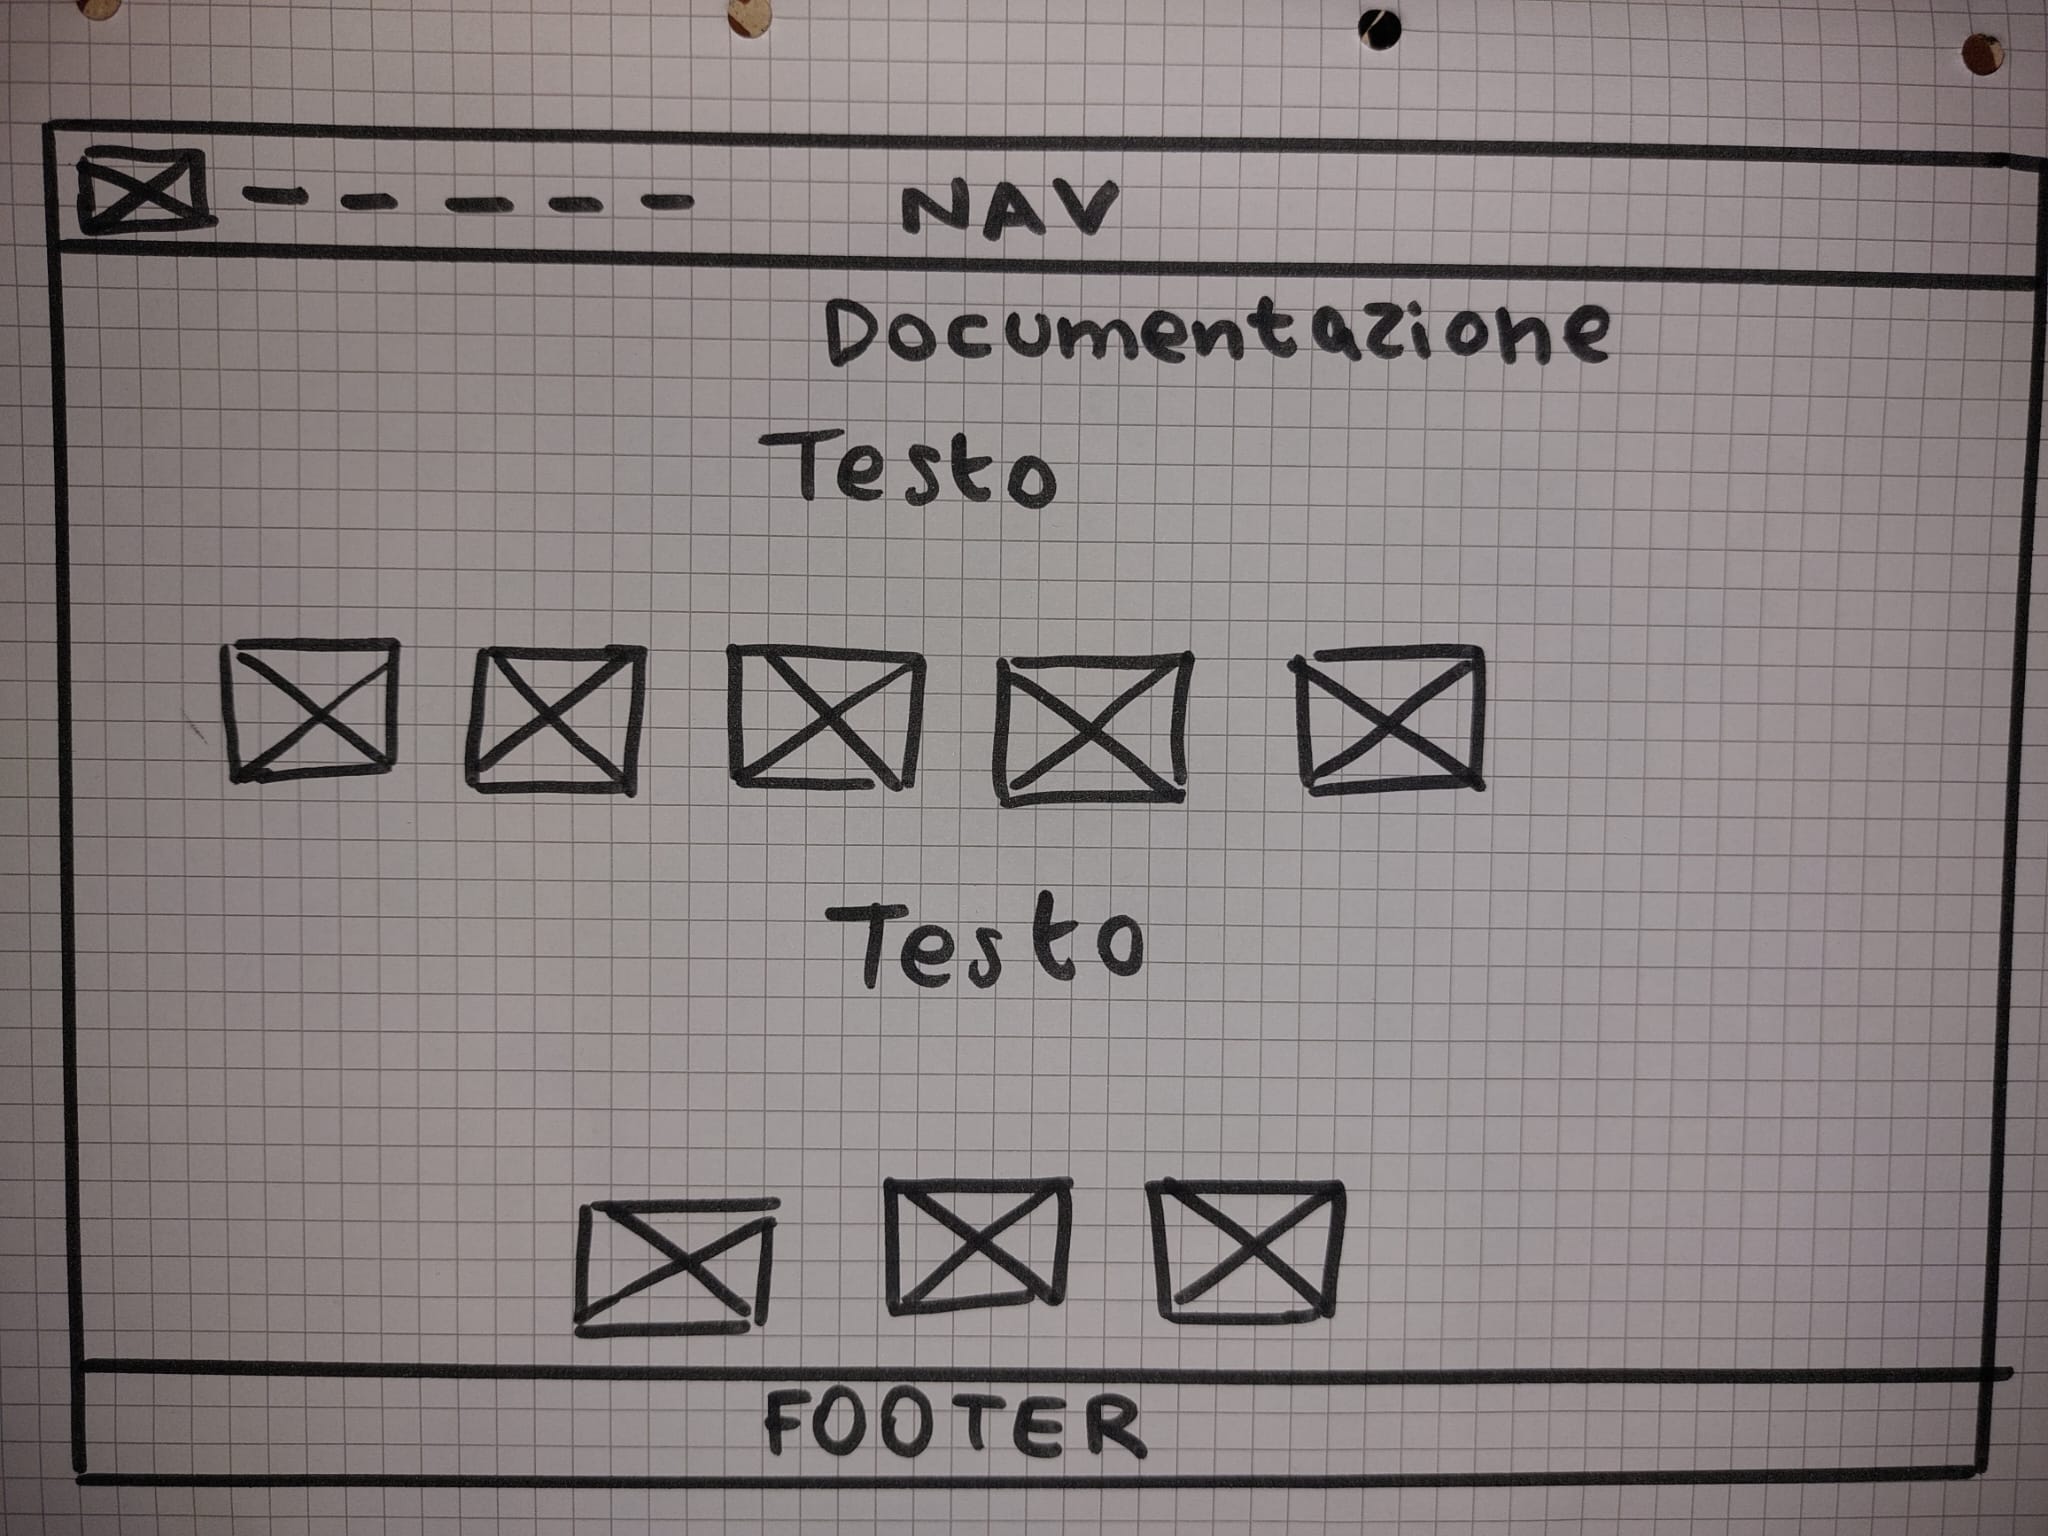 NAV
Documentazione
Testo
Testo
FOOTER